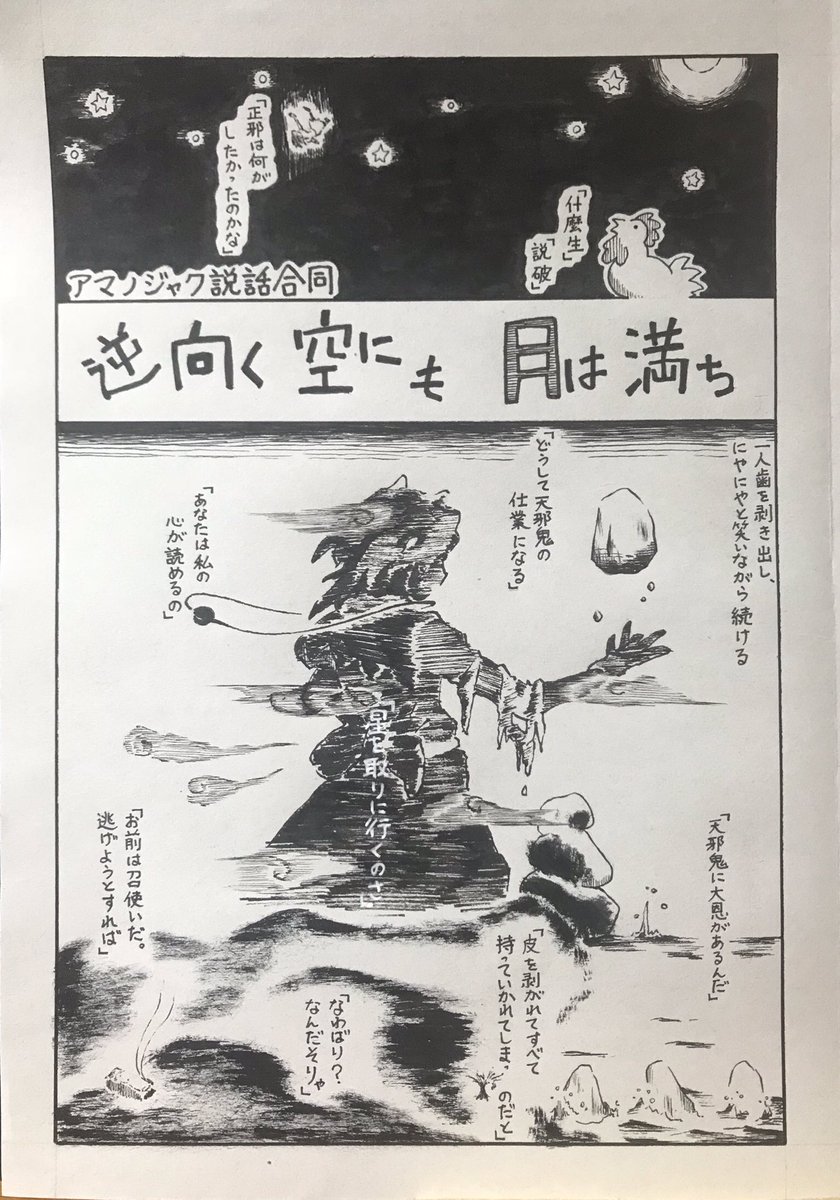 「正邪は何が
したかったのかな」
「什麼生」
「説破」
アマノジャク説話合同
逆向く空にも 月は満ち
一人歯を剥き出し、
にやにやと笑いながら続ける
「どうして天邪鬼の
仕業になる」
「あなたは私の
心が読めるの」
「星を取りに行くのさ」
「天邪鬼に大恩があるんだ」
「お前は召使いだ。
逃げようとすれば」
「皮を剥がれてすべて
持っていかれてしまっ のだと」
「なわばり?
なんだそりゃ」